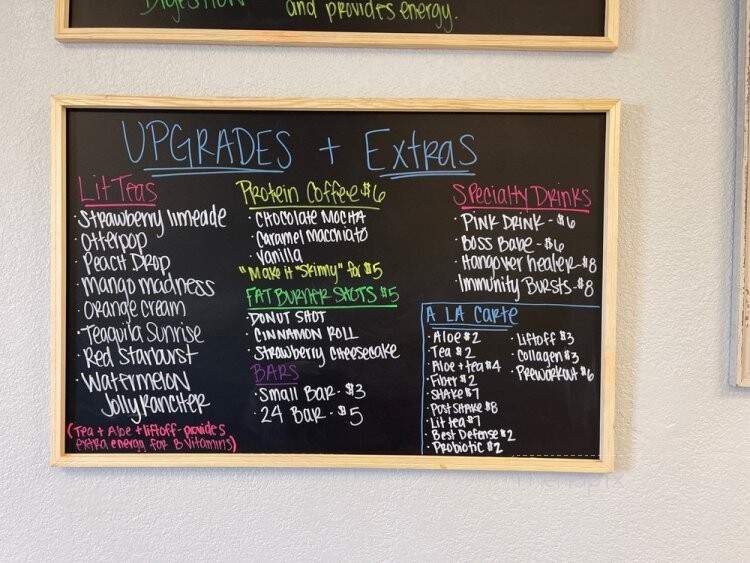 Digestion
and provides energy.
UPGRADES + Extras
Lit Teas
· Strawberry limeade
· Otterpop
· Peach Drop
· Mango madness
· Orange Cream
· Teaquila Sunrise
· Red Starburst
· Watermelon
Jolly Rancher
(Tea + Aloe + liftoff - provides
extra energy for B Vitamins)
Protein Coffee $6
· Chocolate Mocha
· Caramel macchiato
· Vanilla
"Make it "Skinny" for $5
FAT BURNER SHOTS $5
· DONUT SHOT
· CINNAMON ROLL
· Strawberry Cheesecake
BARS
· Small Bar - $3
· 24 Bar - $5
Specialty Drinks
· PINK DRINK - $6
· Boss Babe - $6
· Hangover healer - $8
· Immunity Bursts - $8
A LA CARTE
· Aloe $2
· Tea $2
· Aloe + tea $4
· Fiber $2
· SHAKE $7
· Post SHAKE $8
· Lit tea $7
· Best Defense $2
· Probiotic $2
· Liftoff $3
· Collagen $3
· Preworkout $6